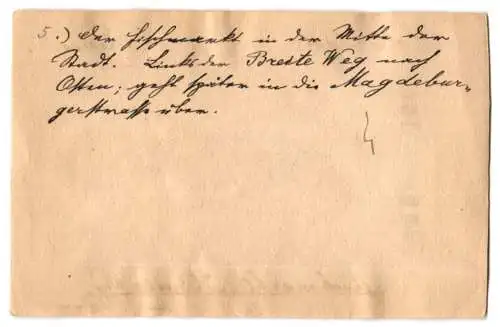 5.) Der Fischmarkt in der Mitte der
Stadt. Links der Breite Weg nach
Osten; geht später in die Magdebur-
gerstrasse über.